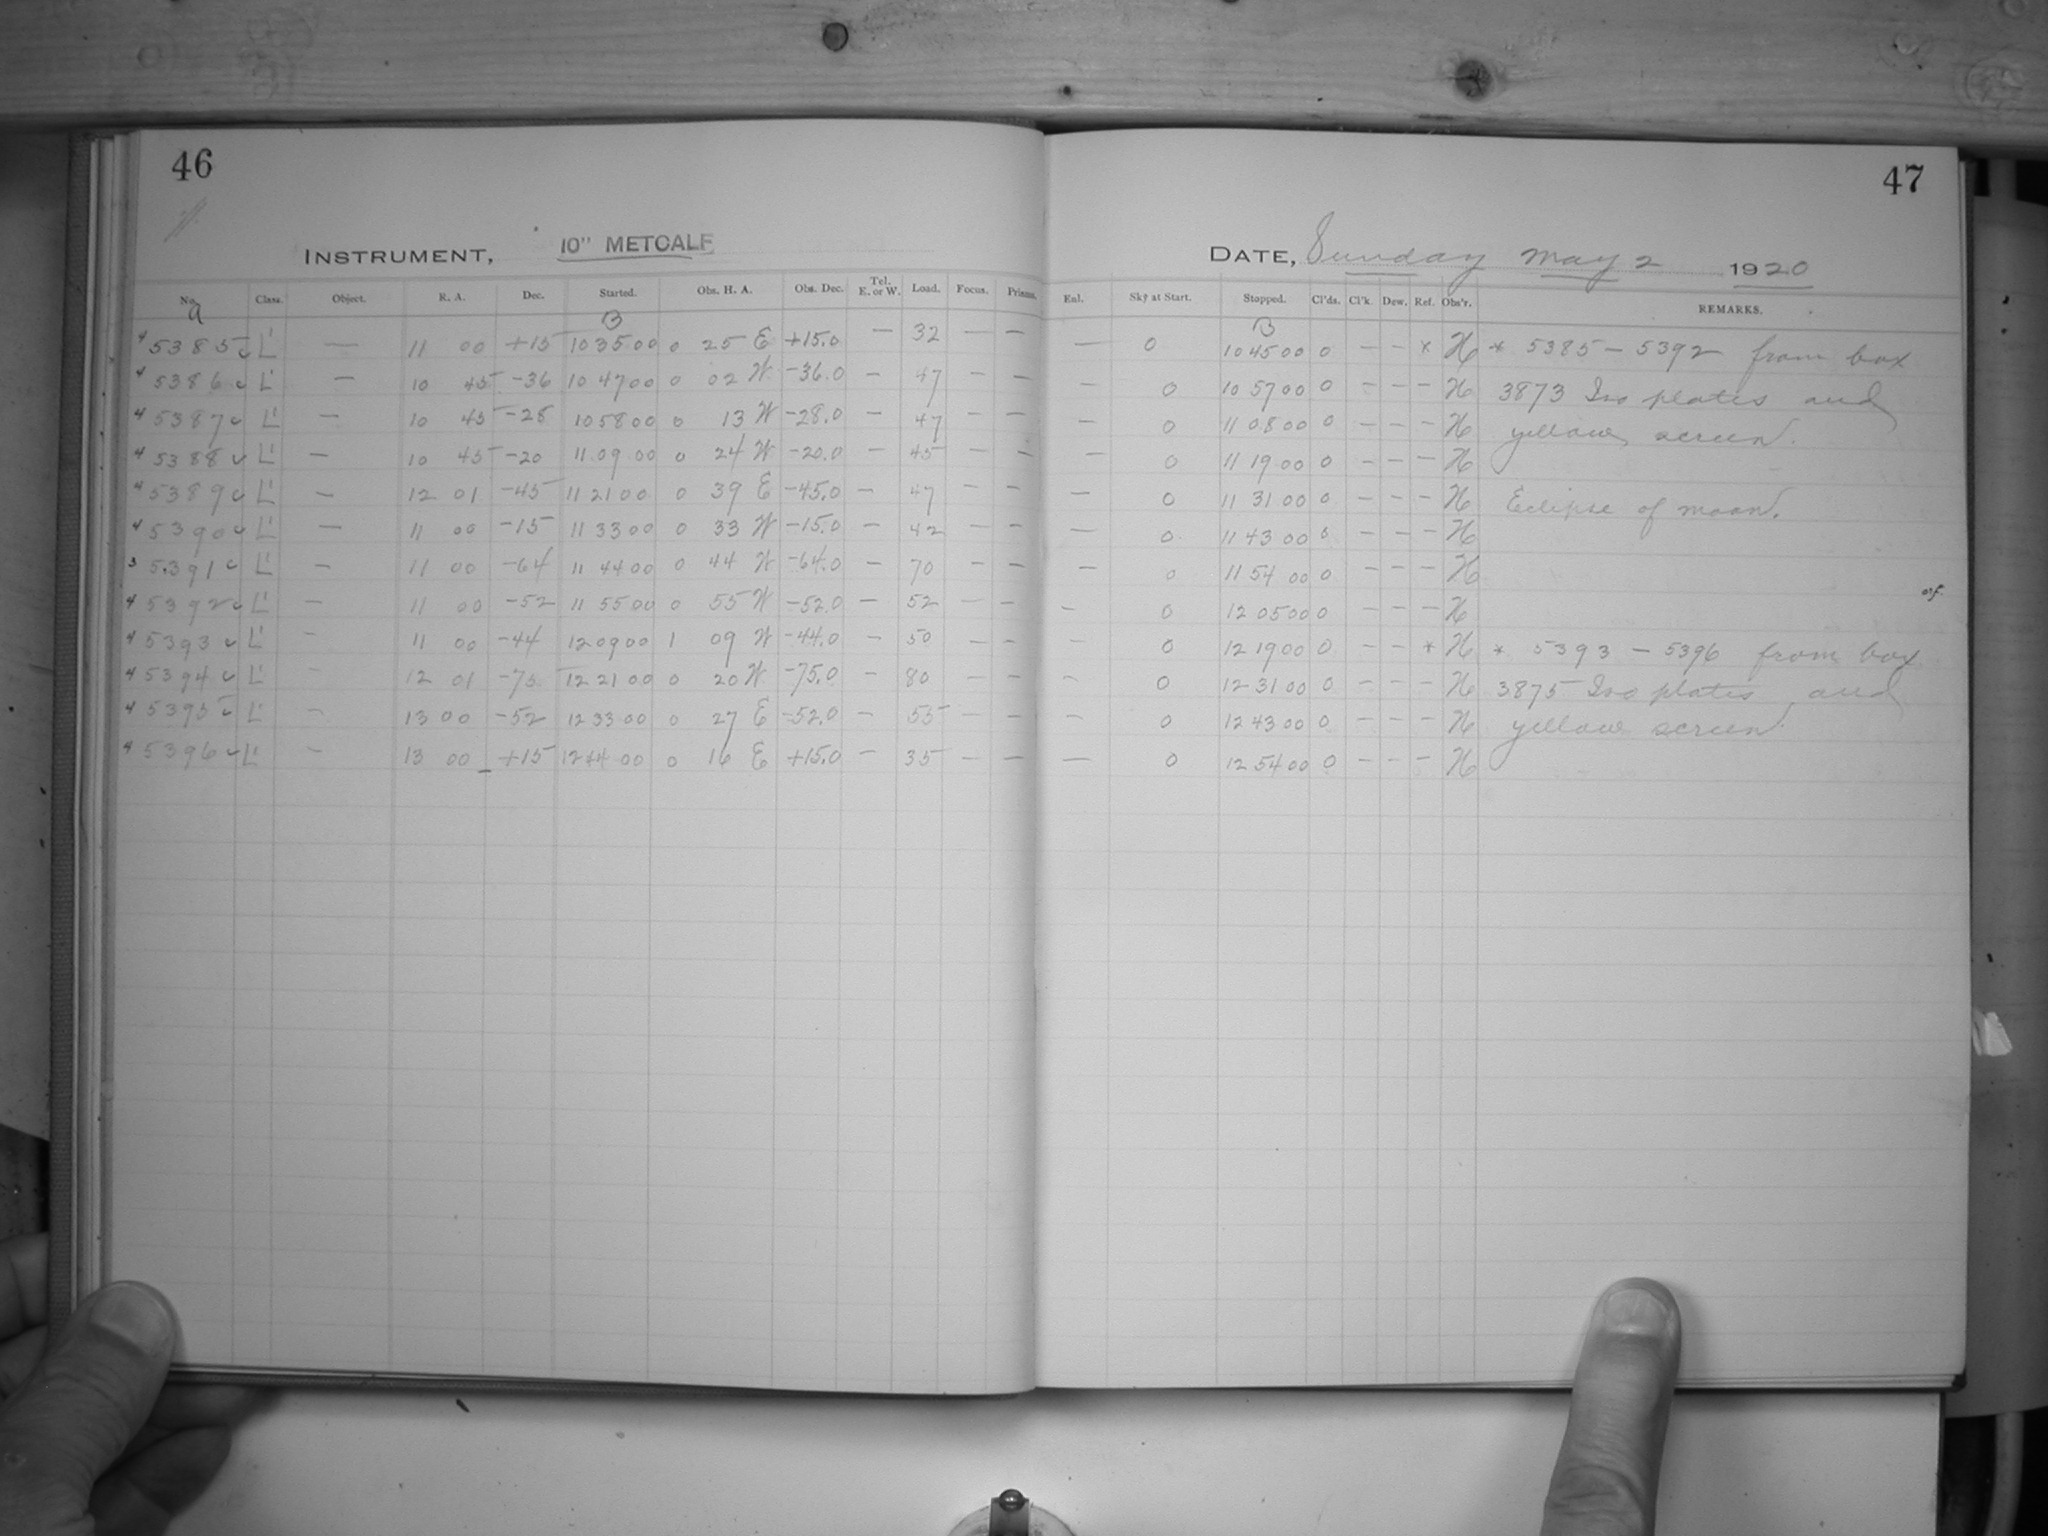 46
INSTRUMENT, 10" METCALF
No. Class. Object. R. A. Dec. Started. Obs. H. A. Obs. Dec. Tel. E. or W. Load. Focus. Prisms.
a B
4 5385 L' — 11 00 +15 10 35 00 0 25 E +15.0 — 32 — —
4 5386 L' — 10 45 -36 10 47 00 0 02 W -36.0 — 47 — —
4 5387 L' — 10 45 -28 10 58 00 0 13 W -28.0 — 47 — —
4 5388 L' — 10 45 -20 11 09 00 0 24 W -20.0 — 45 — —
4 5389 L' — 12 01 -45 11 21 00 0 39 E -45.0 — 47 — —
4 5390 L' — 11 00 -15 11 33 00 0 33 W -15.0 — 42 — —
3 5391 L' — 11 00 -64 11 44 00 0 44 W -64.0 — 70 — —
4 5392 L' — 11 00 -52 11 55 00 0 55 W -52.0 — 52 — —
4 5393 L' — 11 00 -44 12 09 00 1 09 W -44.0 — 50 — —
4 5394 L' — 12 01 -75 12 21 00 0 20 W -75.0 — 80 — —
4 5395 L' — 13 00 -52 12 33 00 0 27 E -52.0 — 55 — —
4 5396 L' — 13 00 +15 12 44 00 0 16 E +15.0 — 35 — —
47
DATE, Sunday May 2 1920
Enl. Sky at Start. Stopped. Cl'ds. Cl'k. Dew. Ref. Obs'r. REMARKS.
B
— 0 10 45 00 0 — — * H * 5385 — 5392 from box
— 0 10 57 00 0 — — — H 3873 Iso plates and
— 0 11 08 00 0 — — — H yellow screen.
— 0 11 19 00 0 — — — H
— 0 11 31 00 0 — — — H Eclipse of moon.
— 0 11 43 00 0 — — — H
— 0 11 54 00 0 — — — H
— 0 12 05 00 0 — — — H
— 0 12 19 00 0 — — * H * 5393 — 5396 from box
— 0 12 31 00 0 — — — H 3875 Iso plates and
— 0 12 43 00 0 — — — H yellow screen.
— 0 12 54 00 0 — — — H